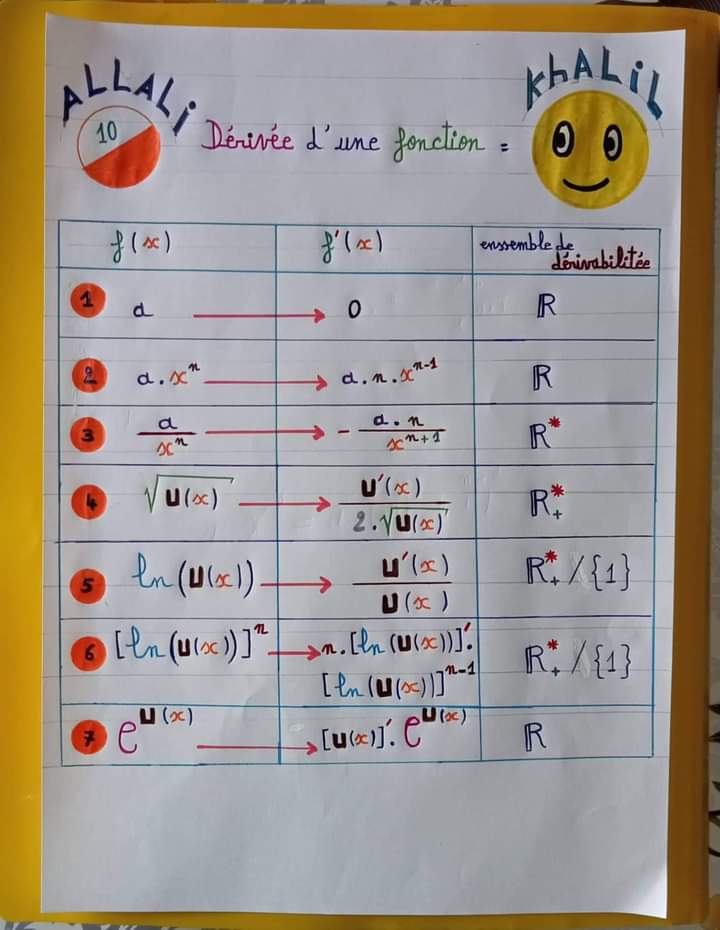 ALLALi
KhALiL
10
Dérivée d'une fonction =
f(x) f'(x) enssemble de dérivabilitée
1 a → 0 ℝ
2 a.xⁿ → a.n.xⁿ⁻¹ ℝ
3 a/xⁿ → - a.n/xⁿ⁺¹ ℝ*
4 √U(x) → U'(x)/2.√U(x) ℝ*₊
5 ln(U(x)) → U'(x)/U(x) ℝ*₊ / {1}
6 [ln(U(x))]ⁿ → n.[ln(U(x))]'. ℝ*₊ / {1}
[ln(U(x))]ⁿ⁻¹
7 e^U(x) → [U(x)]'. e^U(x) ℝ